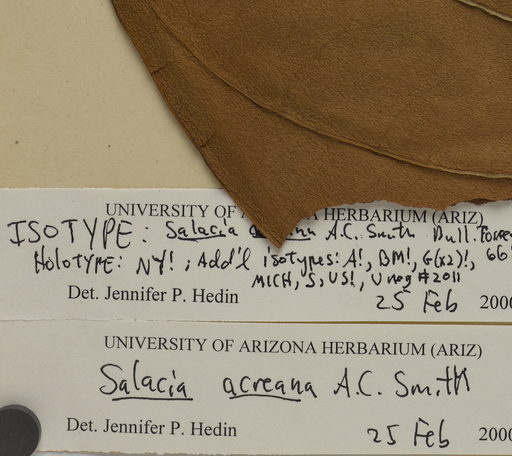 UNIVERSITY OF HERBARIUM (ARIZ)
ISOTYPE: Salacia A.C. Smith Bull.
HOLOTYPE: NY!; Add'l isotypes: A!, BM!, G(x2)!,
MICH, S, US!, #2011
Det. Jennifer P. Hedin 25 Feb 2000
UNIVERSITY OF ARIZONA HERBARIUM (ARIZ)
Salacia acreana A.C. Smith
Det. Jennifer P. Hedin 25 Feb 2000